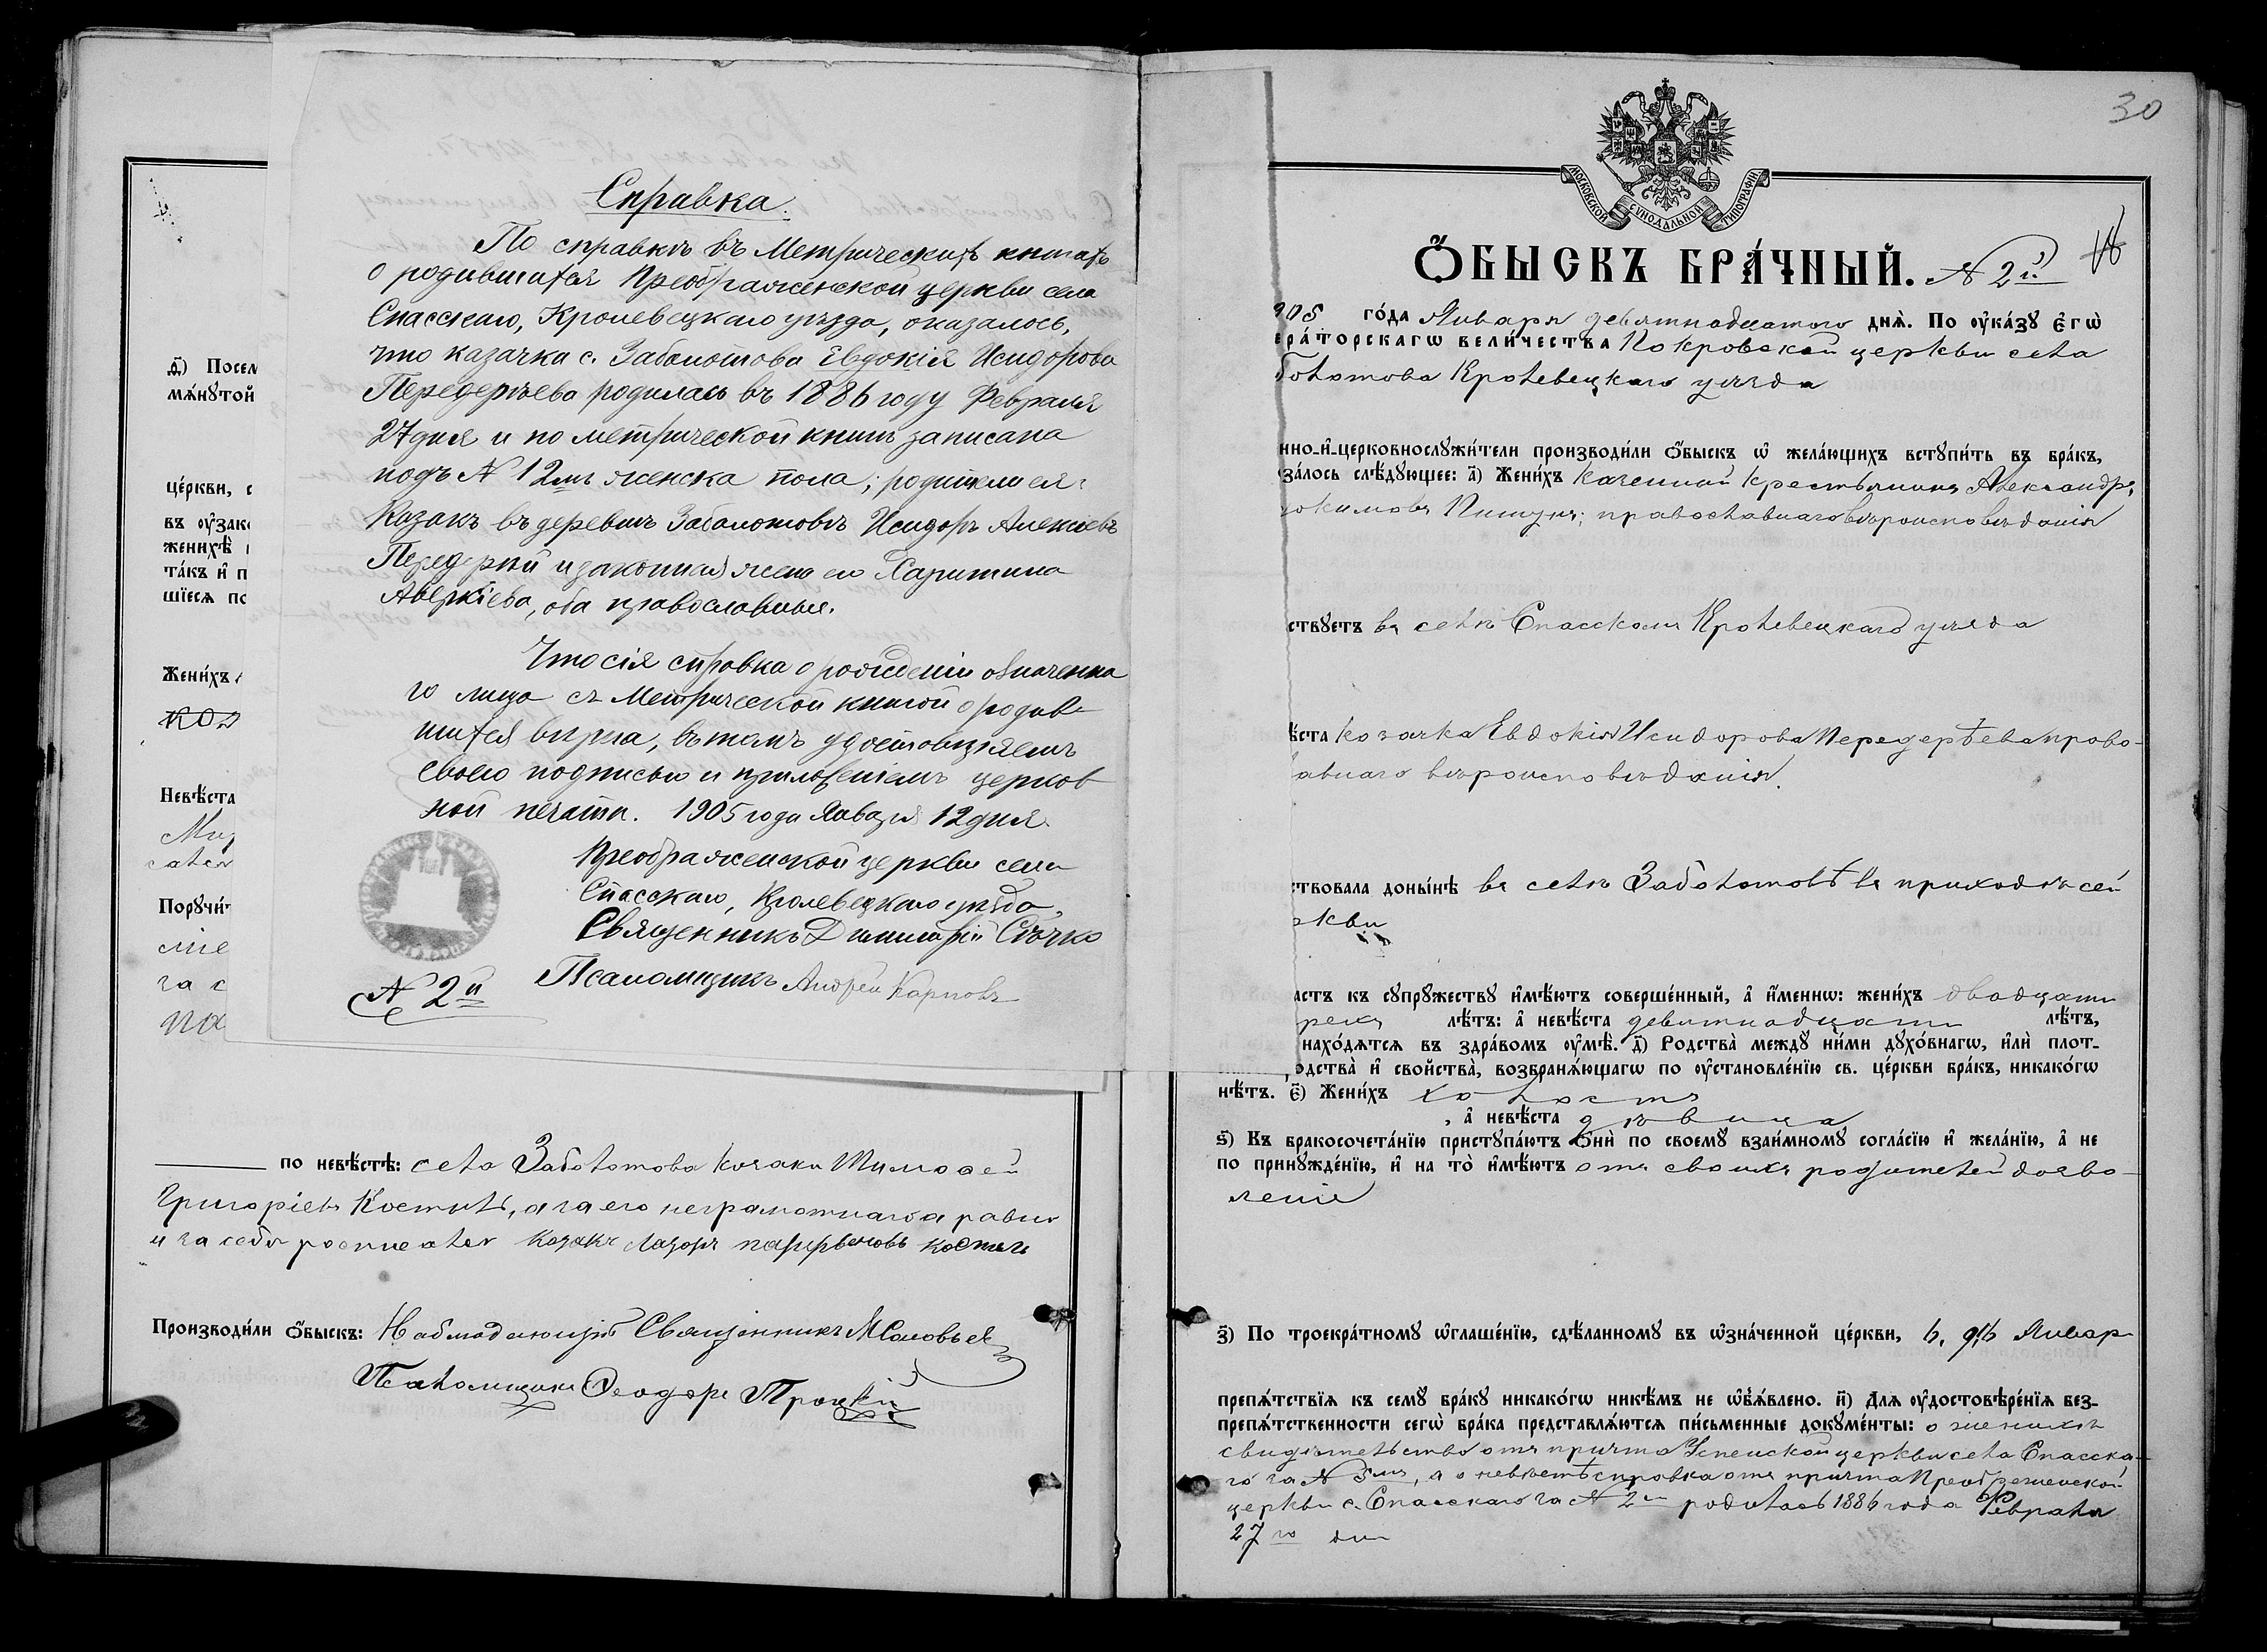 д҃) Посел
мѧ́нутой
це́ркви, с
въ ᲂу҆зако
женихѣ̀
та́къ и҆ п
шїеся по
Жени́хъ
Невѣ́ста
сатен
Порꙋчи́т
сіе
га с
па
Справка.
По справкѣ въ Метрическихъ книгахъ
о родившихся Преображенской церкви села
Спасскаго, Кролевецкаго уѣзда, оказалось,
что казачка с. Заболотова Евдокія Исидорова
Передеріева родилась въ 1886 году Февраля
27 дня и по метрической книгѣ записана
подъ № 12мъ женска пола; родители ея:
Козакъ въ деревнѣ Заболотовѣ Исидоръ Алексіевъ
Передерій и законная жена его Харитина
Аверкіева, оба православные.
Что сія справка о рожденіи означенна
го лица съ Метрической книгой о родив
шихся вѣрна, въ томъ удостовѣряемъ
своею подписью и приложеніемъ церков
ной печати. 1905 года Января 12 дня.
Преображенской церкви села
Спасскаго, Кролевецкаго уѣзда,
Священникъ Димитрій Сѣчко
Псаломщикъ Андрей Карповъ
№ 2й
по невѣ́стѣ: села Заболотова козаки Тимоѳей
Григоріевъ Костиль, а за его неграмотнаго а равно
и за себя росписался Козакъ Лазорь парфьоновъ костиль
Производи́ли ѻ҆́быскъ: Наблюдающій Священникъ М Соловьев
Псаломщикъ Ѳеодоръ Троцкій
30
МОСКОВСКОЙ СѴНОДАЛЬНОЙ ТИПОГРАФІИ
Ѻ҆́БЫСКЪ БРА́ЧНЫЙ. № 2й
905 го́да Января девятнадцатого днѧ̀. По ᲂу҆ка́зꙋ є҆гѡ̀
ера́торскагѡ вели́чества Покровской церкви села
болотова Кролевецкаго уѣзда
нно-и҆-церковнослꙋжи́тели производи́ли ѻ҆́быскъ ѡ҆ жела́ющихъ встꙋпи́ть въ бра́къ,
за́лось слѣ́дꙋющее: а҃) Жени́хъ Казенный Крестьянинъ Александръ
докимовъ Пищунъ; православнаго вѣроисповѣданія
ствꙋетъ въ селѣ Спасскомъ Кролевецкаго уѣзда
ѣста козачка Евдокія Исидорова Передерѣева право-
авнаго вѣроисповѣданія.
ствовала доны́нѣ въ селѣ Заболотовѣ въ приходѣ сей
ркви
астъ къ сꙋпрꙋжествꙋ и҆мѣ́ютъ соверше́нный, а҆ и҆́меннѡ: жени́хъ двадцати
рехъ лѣ́тъ: а҆ невѣ́ста девятнадцати лѣ́тъ,
нахо́дѧтсѧ въ здра́вомъ ᲂу҆мѣ̀. д҃) Родства̀ междꙋ̀ ни́ми дꙋхо́внагѡ, и҆лѝ пло́т-
одства̀ и҆ сво́йства̀, возбранѧ́ющагѡ по ᲂу҆становле́нїю св. це́ркви бра́къ, никако́гѡ
нѣ́тъ. є҃) Жени́хъ холостъ
, а҆ невѣ́ста дѣвица
ѕ҃) Къ бракосочета́нїю пристꙋпа́ютъ ѻ҆нѝ по своемꙋ̀ взаи́мномꙋ согла́сїю и҆ жела́нїю, а҆ не
по принꙋжде́нїю, и҆ на то̀ и҆мѣ́ютъ отъ своихъ родителей дозво-
леніе
з҃) По троекра́тномꙋ ѡ҆глаше́нїю, сдѣ́ланномꙋ въ ѡ҆зна́ченной це́ркви, 6, 9, 16 Январ
препѧ́тствїѧ къ семꙋ̀ бра́кꙋ никако́гѡ никѣ́мъ не ѡ҆б̾ѧ́влено. и҃) Длѧ ᲂу҆достовѣре́нїѧ без-
препѧ́тственности сегѡ̀ бра́ка представлѧ́ютсѧ пи́сьменные докꙋме́нты: о женихѣ
свидѣтельство отъ причта Успенской церкви села Спасска-
го за № 5мъ, а о невѣстѣ справка отъ причта Преображенской
церкви с. Спасскаго за № 2й родилась 1886 года Февраля
27го дня